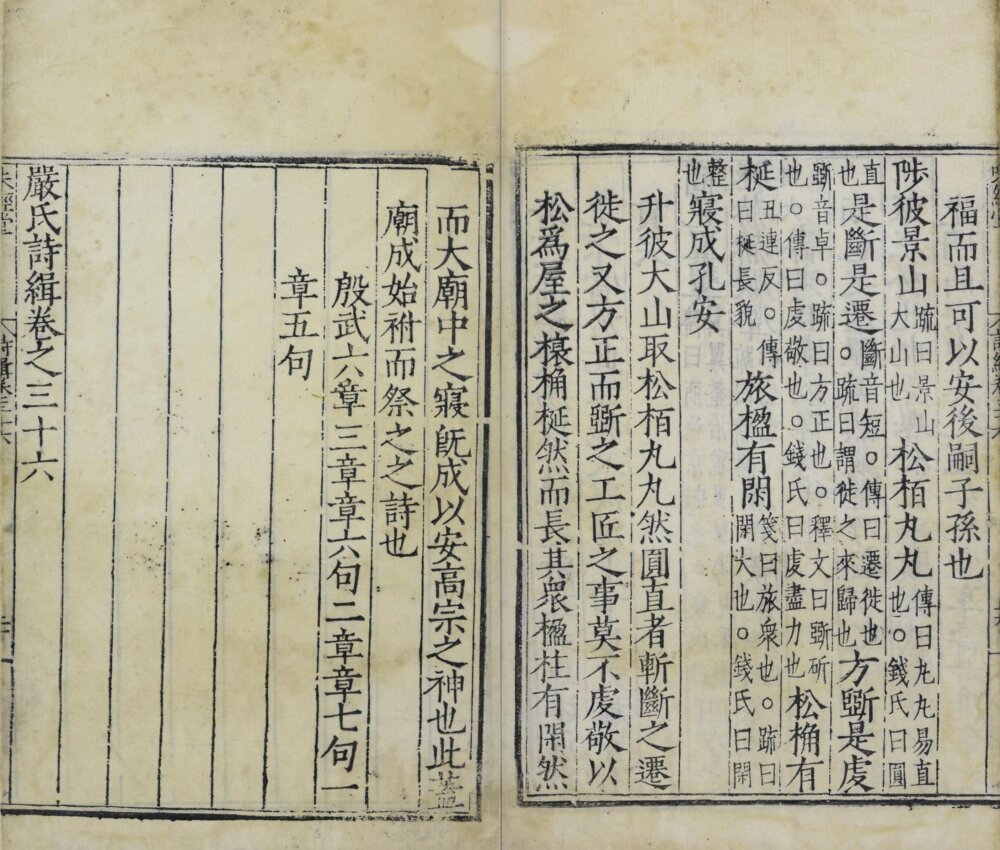 福而且可以安後嗣子孫也
陟彼景山疏曰景山大山也松栢丸丸傳曰丸丸易直也○錢氏曰圓
直也是斷是遷斷音短○傳曰遷徙也○疏曰謂徙之來歸也方斲是虔
斲音卓○疏曰方正也○釋文曰斲斫也○傳曰虔敬也○錢氏曰虔盡力也松桷有
梴梴丑連反○傳曰梴長貌旅楹有閑箋曰旅衆也○疏曰閑大也○錢氏曰閑
整也寢成孔安
升彼大山取松栢丸丸然圓直者斬斷之遷
徙之又方正而斲之工匠之事莫不虔敬以
松爲屋之榱桷梴然而長其衆楹柱有閑然
而大廟中之寢旣成以安高宗之神也此蓋
廟成始祔而祭之之詩也
殷武六章三章章六句二章章七句一
章五句
嚴氏詩緝卷之三十六